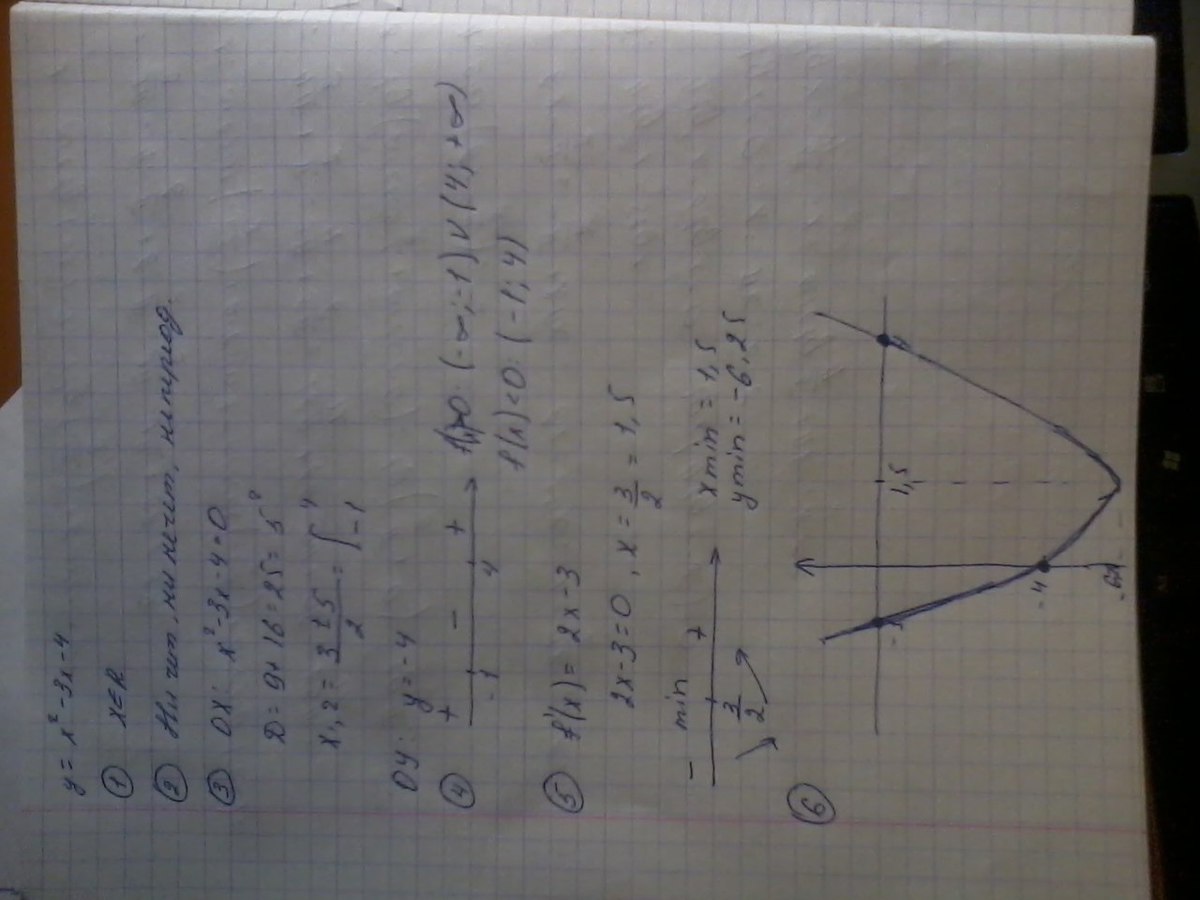 y = x² - 3x - 4
① x∈R
② Ни чет., ни нечет., непериод.
③ OX: x² - 3x - 4 = 0
D = 9 + 16 = 25 = 5²
x1,2 = (3 ± 5)/2 = [4
-1
OY: y = -4
④ + - +
-1 4
f(x)>0: (-∞; -1) ∪ (4; +∞)
f(x)<0: (-1; 4)
⑤ f'(x) = 2x - 3
2x - 3 = 0, x = 3/2 = 1,5
- min +
3/2
xmin = 1,5
ymin = -6,25
⑥
-1 1,5 4
-4